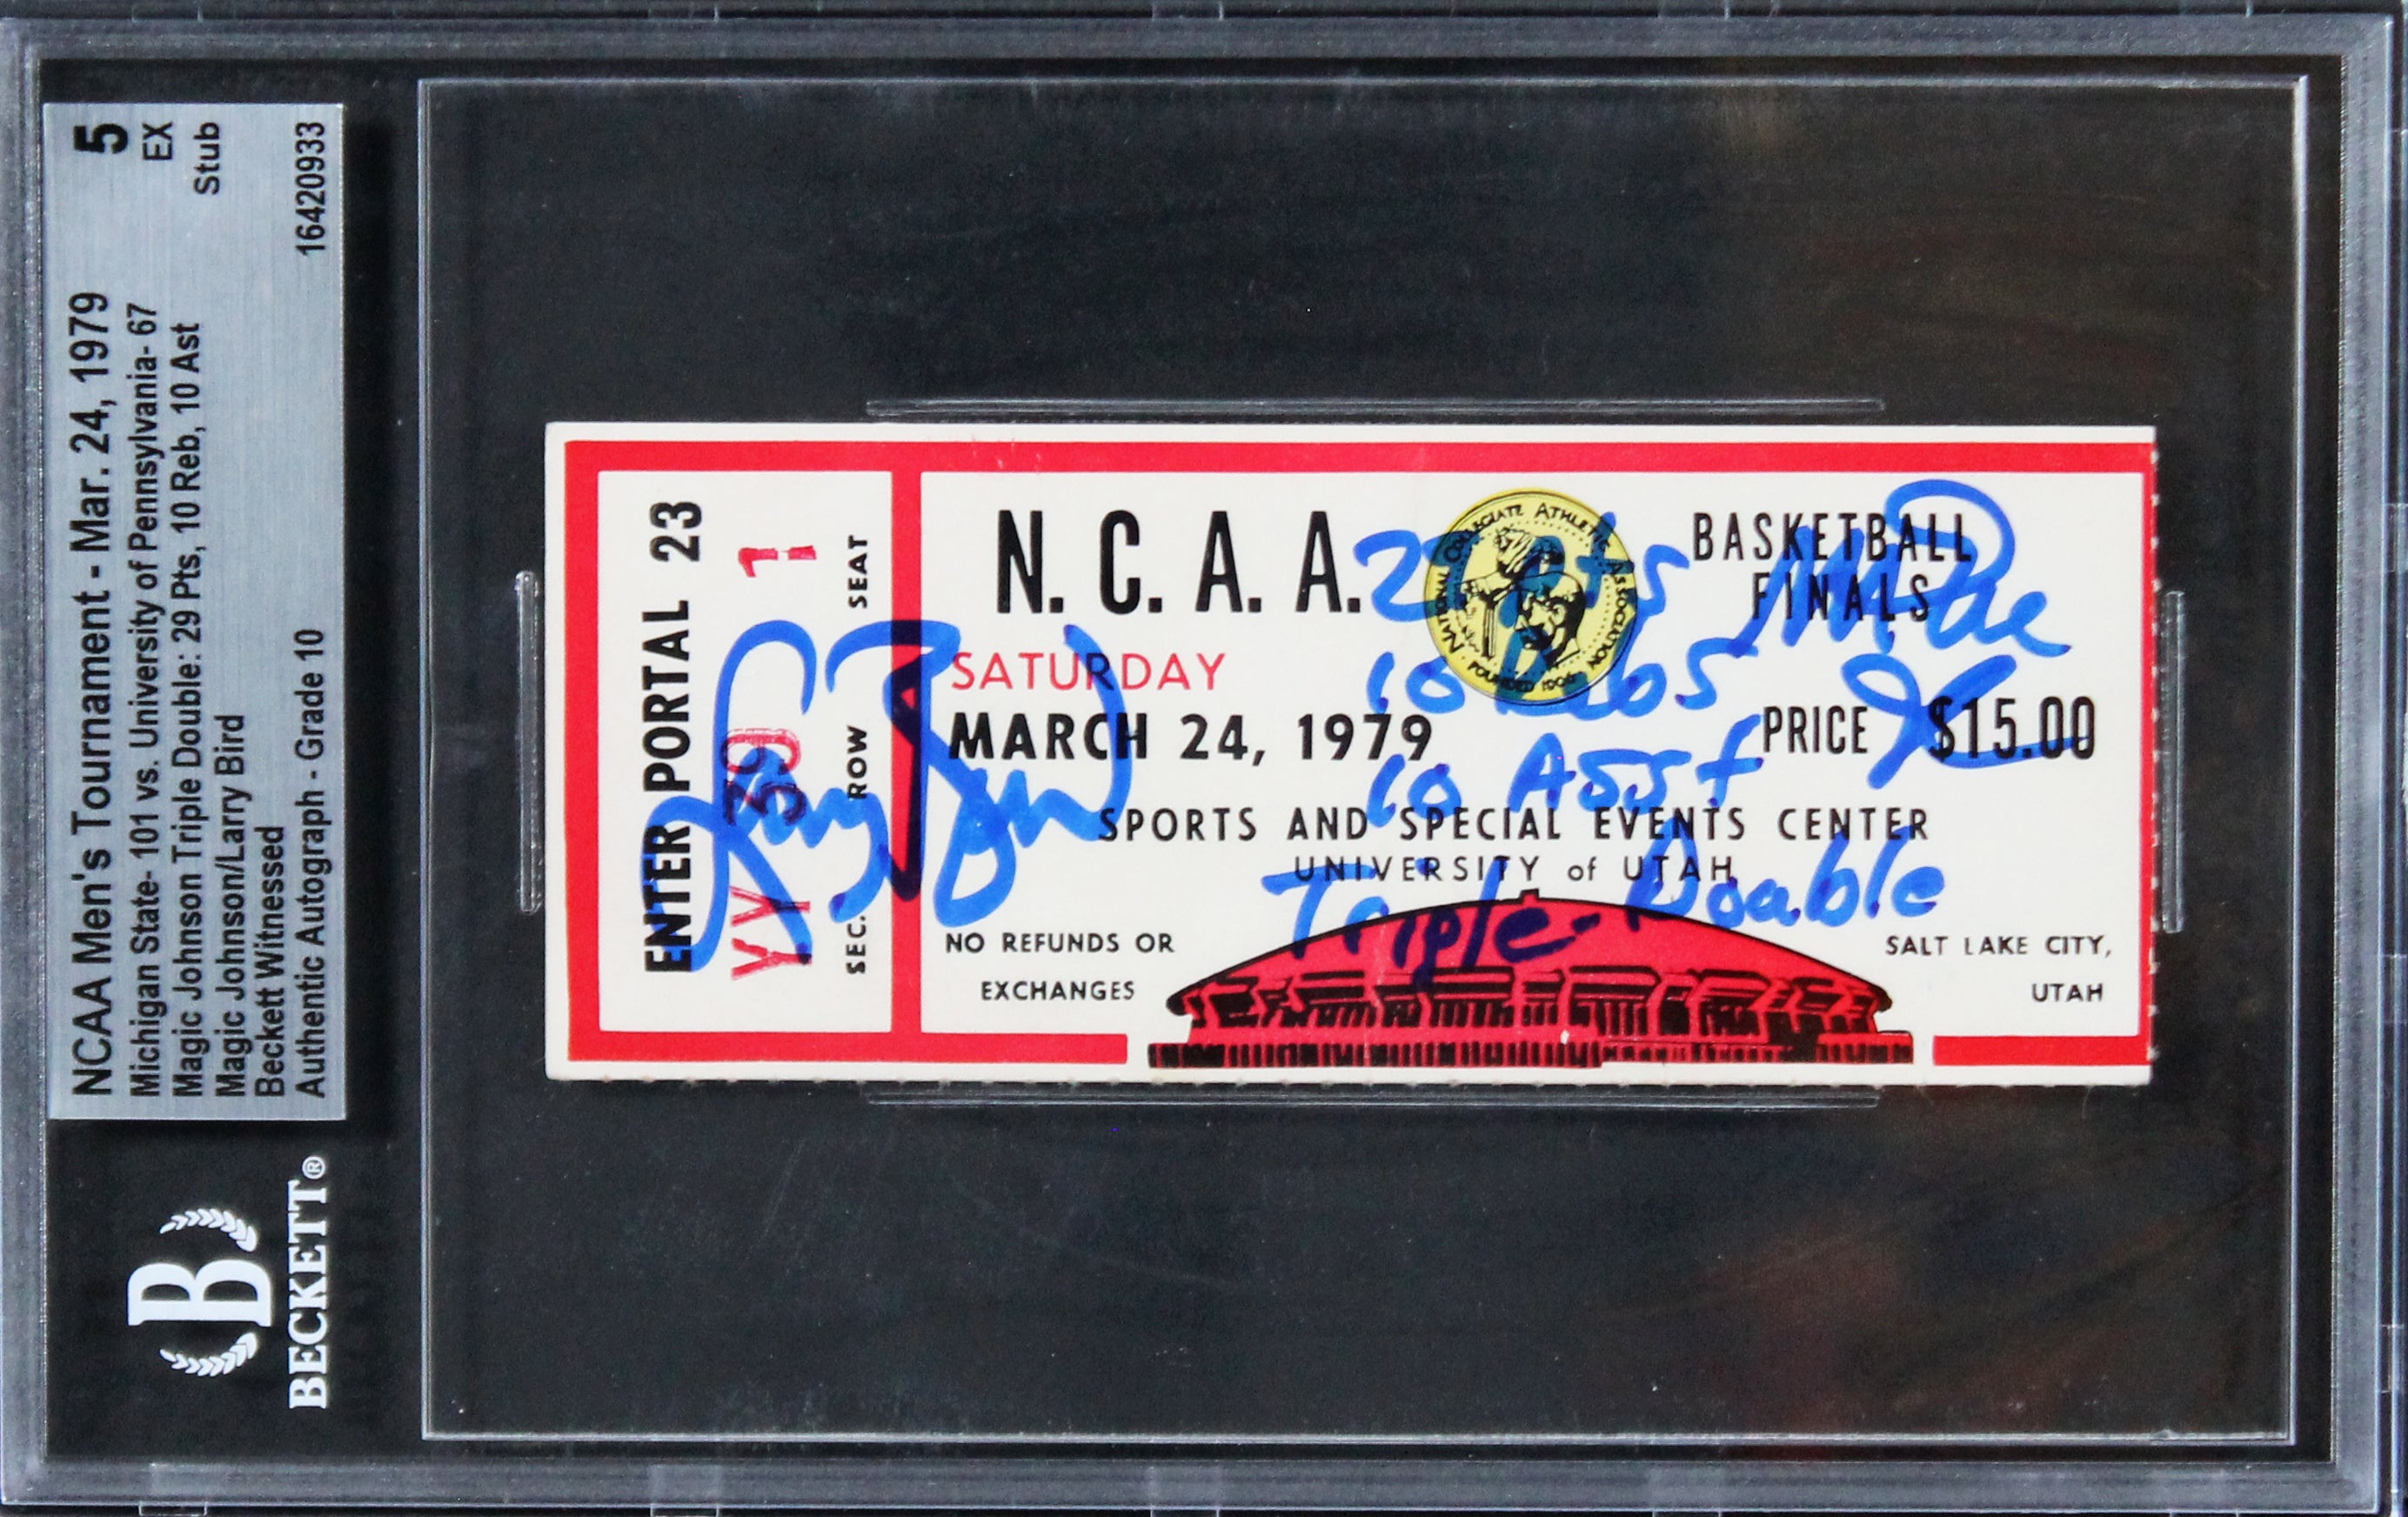 NCAA Men's Tournament - Mar. 24, 1979
Michigan State- 101 vs. University of Pennsylvania- 67
Magic Johnson Triple Double: 29 Pts, 10 Reb, 10 Ast
Magic Johnson/Larry Bird
Beckett Witnessed
Authentic Autograph - Grade 10
5
EX
Stub
16420933
B
BECKETT®
ENTER PORTAL 23
YY 39 1
SEC. ROW SEAT
Larry Bird
N. C. A. A.
NATIONAL COLLEGIATE ATHLETIC ASSOCIATION
FOUNDED 1906
BASKETBALL
FINALS
SATURDAY
MARCH 24, 1979
PRICE $15.00
SPORTS AND SPECIAL EVENTS CENTER
UNIVERSITY of UTAH
NO REFUNDS OR
EXCHANGES
SALT LAKE CITY,
UTAH
10 Rebs
10 Asst
Triple-Double